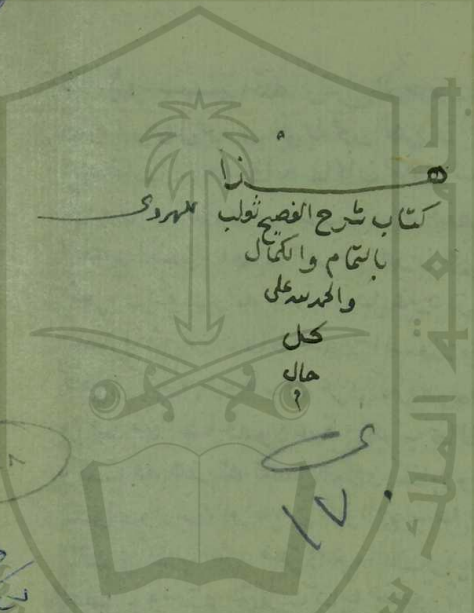 هذا
كتاب شرح الفصيح ثعلب للهروي
بالتمام والكمال
والحمد لله على
كل
حال
١٧
جامعة الملك س